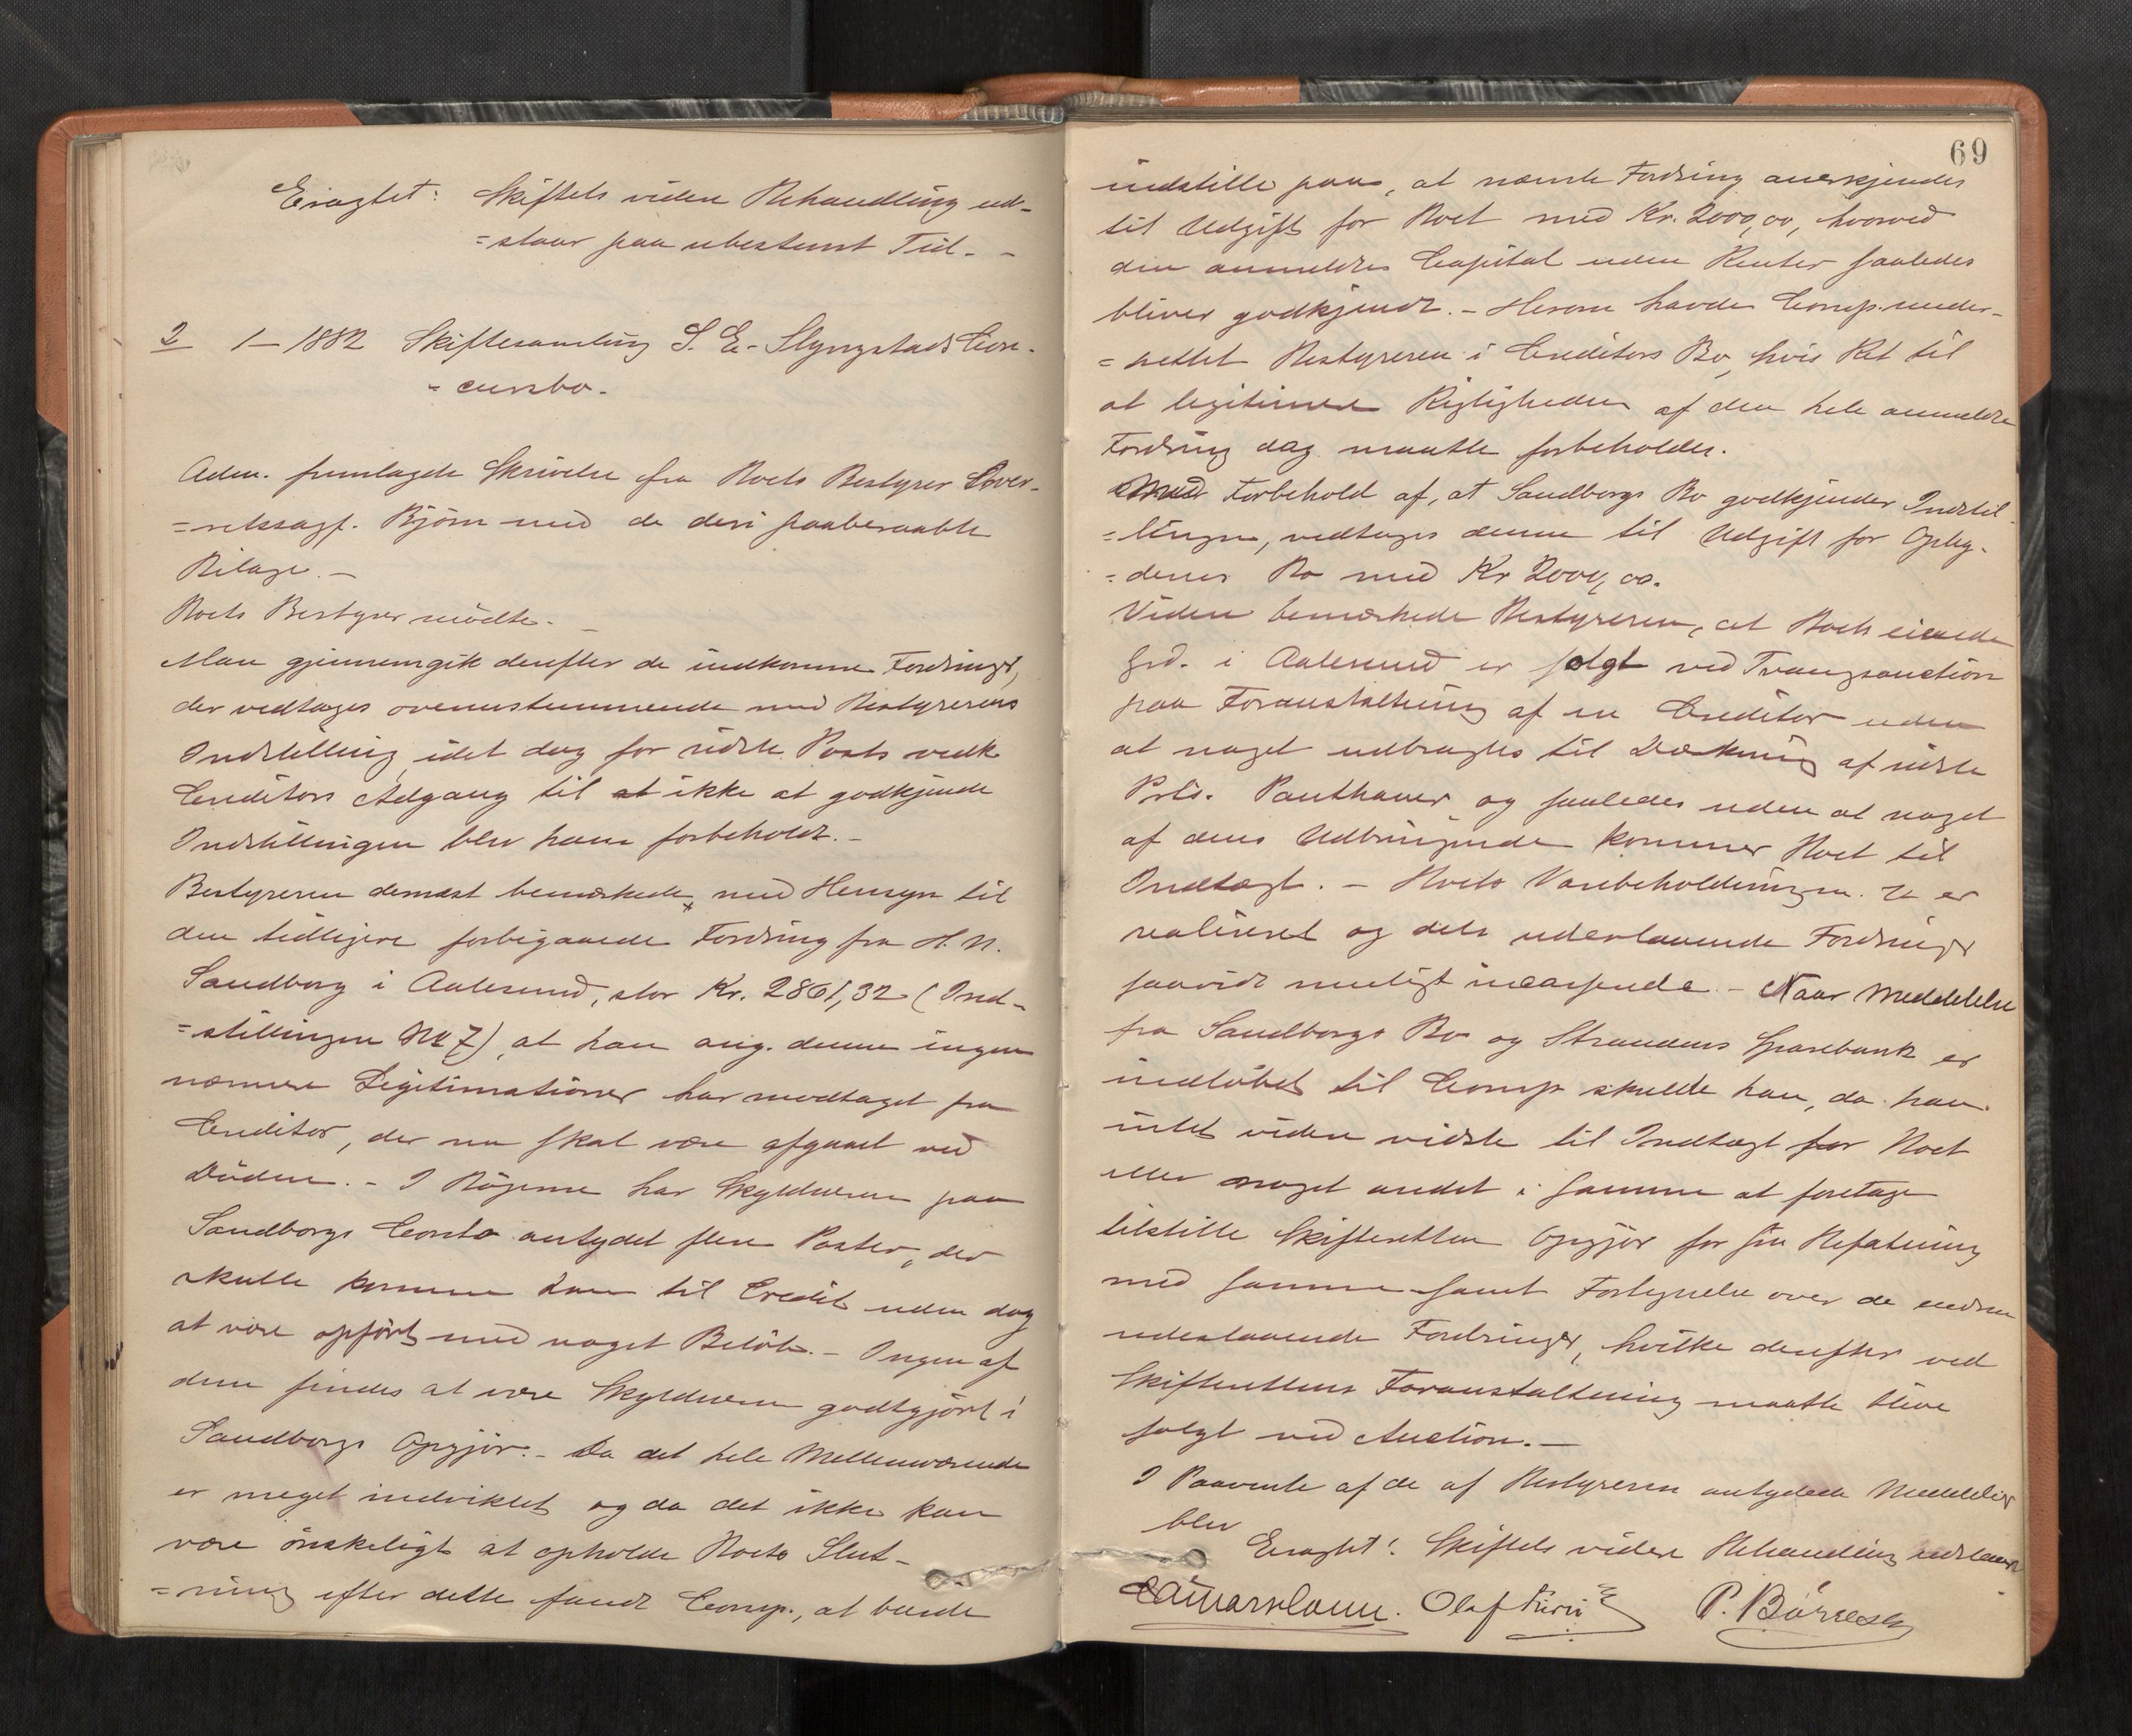 Eragtet: Skiftets videre Behandling ud-
=staar paa ubestemt Tid. -
2 1 - 1882 Skiftesamling S. E. Slyngstads Con-
=cursbo.
Adm. fremlagde Skrivelse fra Boets Bestyrer Over-
=retssagf. Bjørn med de deri paaberaabte
Bilage. -
Boets Bestyrer mødte. -
Man gjennemgik derefter de indkomne Fordringer,
der vedtages overensstemmende med Bestyrerens
Indstilling, idet dog for sidste Posts vedk.
Creditors Adgang til at ikke at godkjende
Indstillingen blev ham forbeholdt. -
Bestyreren dernæst bemærkede, med Hensyn til
den tidligere forbigaaede Fordring fra H. N.
Sandborg i Aalesund, stor Kr. 2861,32 (Ind-
=stillingen No 7), at han ang. denne ingen
nærmere Legitimationer har modtaget fra
Creditor, der nu skal være afgaaet ved
Døden. - I Bøgerne har Skyldneren paa
Sandborgs Conto antydet flere Poster, der
skulle komme ham til Credit uden dog
at være opført med noget Beløb. - Ingen af
dem findes at være Skyldneren godtgjort i
Sandborgs Opgjør. - Da det hele Mellemværende
er meget indviklet og da det ikke kan
være ønskeligt at opholde Boets Slut-
=ning efter dette fandt Comp., at burde
69
indstille paa, at nævnte Fordring anerkjendes
til Udgift for Boet med Kr. 2000,00, hvorved
den anmeldte Capital uden Renter saaledes
bliver godkjendt. - Herom havde Comp. under-
=rettet Bestyreren i Creditors Bo, hvis Ret til
at legitimere Rigtigheden af den hele anmeldte
Fordring dog maatte forbeholdes.
Med Forbehold af, at Sandborgs Bo godkjender Indstil-
=lingen, vedtages denne til Udgift for Opby-
=derens Bo med Kr 2000,00.
Videre bemærkede Bestyreren, at Boets eiende
Grd. i Aalesund er solgt ved Tvangsauction
paa Foranstaltning af en Creditor uden
at noget udbragtes til Dækning af sidste
Prts. Panthaver og saaledes uden at noget
af dens Udbringende kommer Boet til
Indtægt. - Boets Varebeholdninger er
realiseret og dets udestaaende Fordringer
saavidt muligt incasserede. - Naar Meddelelse
fra Sandborgs Bo og Strandens Sparebank er
indløbet til Comp. skulde han, da han
intet videre vidste til Indtægt for Boet
eller noget andet i samme at foretage
tilstille Skifteretten Opgjør for sin Befatning
med samme samt Fortegnelse over de endnu
udestaaende Fordringer, hvilke derefter ved
Skifterettens Foranstaltning maatte blive
solgt ved Auction. -
I Paavente af de af Bestyreren antydede Meddelelser
blev
Eragtet: Skiftets videre Behandling udstaar
Olaf P. Børresen